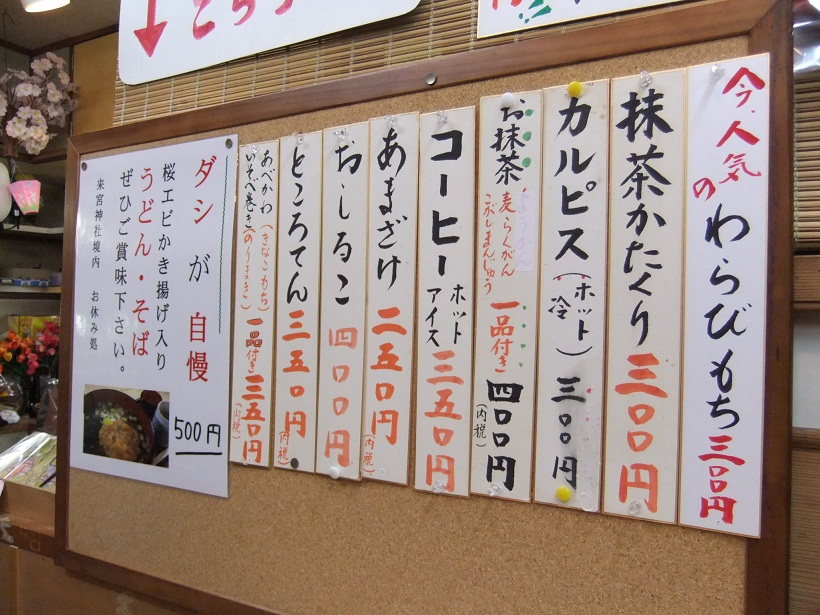 こちら
今人気の
わらびもち三〇〇円
抹茶かたくり三〇〇円
カルピス(ホット 冷)三〇〇円
お抹茶
ようかん
麦らくがん
こぶしまんじゅう
一品付き
四〇〇円
(内税)
コーヒー
ホット
アイス
三五〇円
あまざけ二五〇円
(内税)
おしるこ四〇〇円
ところてん三五〇円
(内税)
あべかわ(きなこもち)
いそべ巻き(のりまき)
一品付き三五〇円
(内税)
ダシが自慢
桜エビかき揚げ入り
うどん・そば
ぜひご賞味下さい。
来宮神社境内 お休み処
500円